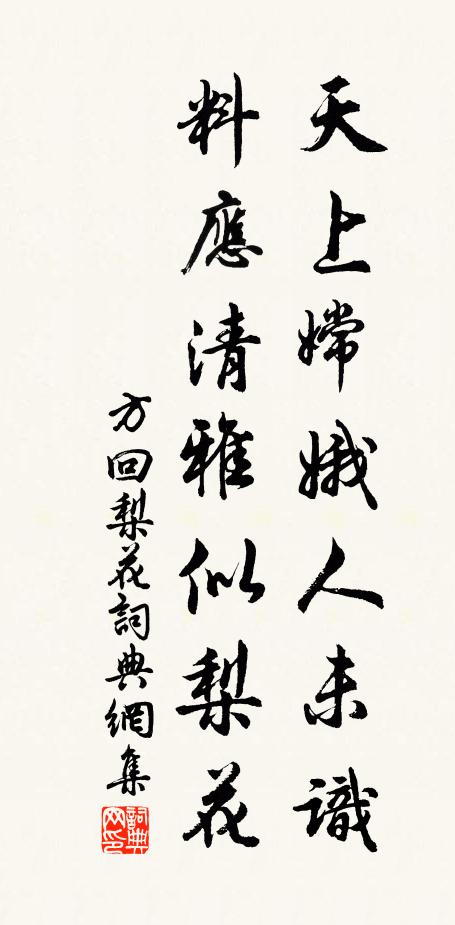 天上嫦娥人未識
料應清雅似梨花
方回梨花詞典網集
詞典网印